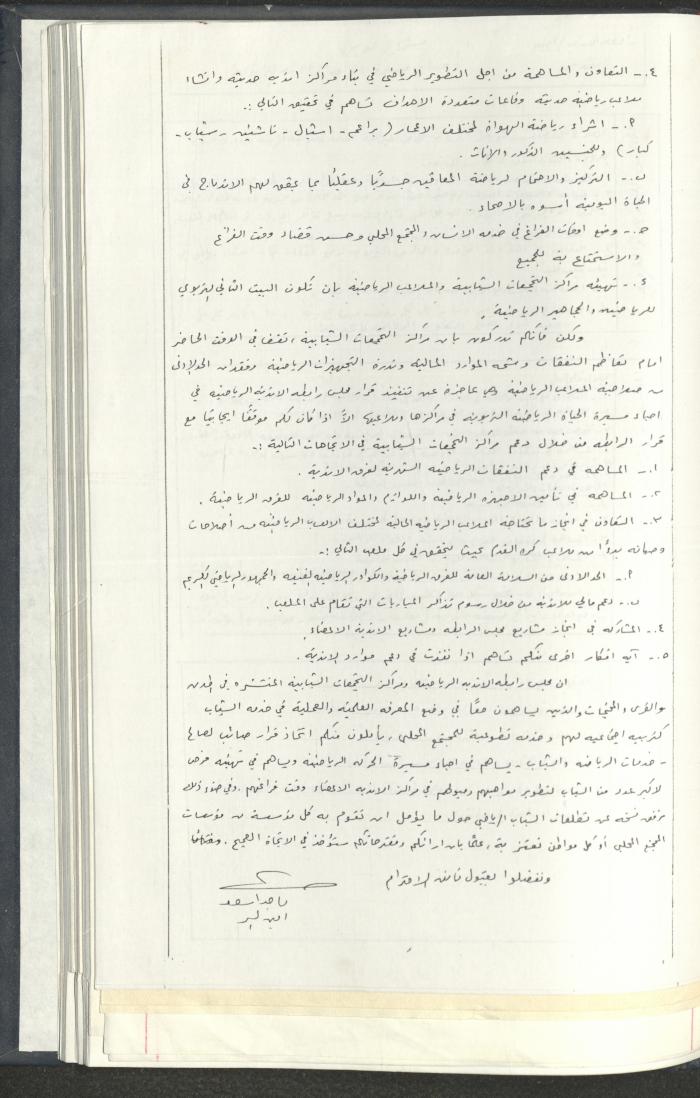 ٤.- التعاون والمساهمة من اجل التطوير الرياضي في بناء مراكز اندية حديثه وانشاء
ملاعب رياضية حديثة وقاعات متعددة الاهداف تساهم في تحقيق التالي :.
٩.- اثراء رياضة الهواة لمختلف الاعمار ( براعم - اشبال - ناشئين - شباب -
كبار ) وللجنسين الذكور والاناث .
ب.- التركيز والاهتمام لرياضة المعاقين جسديًا وعقليًا بما يحقق لهم الاندماج في
الحياة اليومية أسوه بالاصحاء .
ج.- وضع اوقات الفراغ في خدمه الانسان والمجتمع المحلي وحسن قضاء وقت الفراغ
والاستمتاع به للجميع
د.- تهيئه مراكز التجمعات الشبابية والملاعب الرياضية بان تكون البيت الثاني التربوي
للرياضيين والجماهير الرياضية .
ولكن فانكم تدركون بان مراكز التجمعات الشبابية ، تقف في الوقت الحاضر
امام تعاظم النفقات وشحه الموارد المالية وندرة التجهيزات الرياضية وفقدان الحد الادنى
من صلاحية الملاعب الرياضية وهي عاجزة عن تنفيذ قرار مجلس رابطه الاندية الرياضيه في
احياء مسيرة الحياة الرياضية التربوية في مراكزها وملاعبها الاّ اذا كان لكم موقفًا ايجابيًا مع
قرار الرابطه من خلال دعم مراكز التجمعات الشبابية في الاتجاهات التالية :.
١.- المساهمه في دعم النفقات الرياضيه الشهرية لفرق الاندية .
٢.- المساهمه في تأمين الاجهزه الرياضية واللوازم والمواد الرياضيه للفرق الرياضية .
٣.- التعاون في انجاز ما تحتاجة الملاعب الرياضيه الحالية لمختلف الالعاب الرياضيه من أصلاحات
وصيانه بدءًا من ملاعب كره القدم بحيث يتحقق في كل ملعب التالي :.
٩.- الحد الادنى من السلامة العامة للفرق الرياضية والكوادر الرياضيه الفنيه والجمهور الرياضي الكريم
ب.- دعم مالي للاندية من خلال رسوم تذاكر المباريات التي تقام على الملعب .
٤.- المشاركه في انجاز مشاريع مجلس الرابطه ومشاريع الاندية الاعضاء .
٥.- آيه افكار اخرى منكم تساهم اذا نفذت في دعم موارد الاندية .
ان مجلس رابطه الانديه الرياضيه ومراكز التجمعات الشبابية المنتشره في المدن
والقرى والمخيمات والذين يساهمون معًا في وضع المعرفه العلميه والعملية في خدمه الشباب
كتربيه اجتماعيه لهم وخدمه تطوعية للمجتمع المحلي ، يأملون منكم اتخاذ قرار صائب لصالح
- خدمات الرياضه والشباب - يساهم في احياء مسيرة الحركه الرياضية ويساهم في تهيئه فرص
لاكبر عدد من الشباب لتطوير مواهبهم وميولهم في مراكز الانديه الاعضاء وقت فراغهم . وفي ضوء ذلك
نرفق نسخه عن تطلعات الشباب الرياضي حول ما يؤمل ان تقوم به كل مؤسسة من مؤسسات
المجتمع المحلي أو كل مواطن نعتز به ، علمًا بان ارائكم ومقترحاتكم ستؤخذ في الاتجاة الصحيح .
وتفضلوا بقبول فائق الاحترام
ماجد اسعد
امين السر